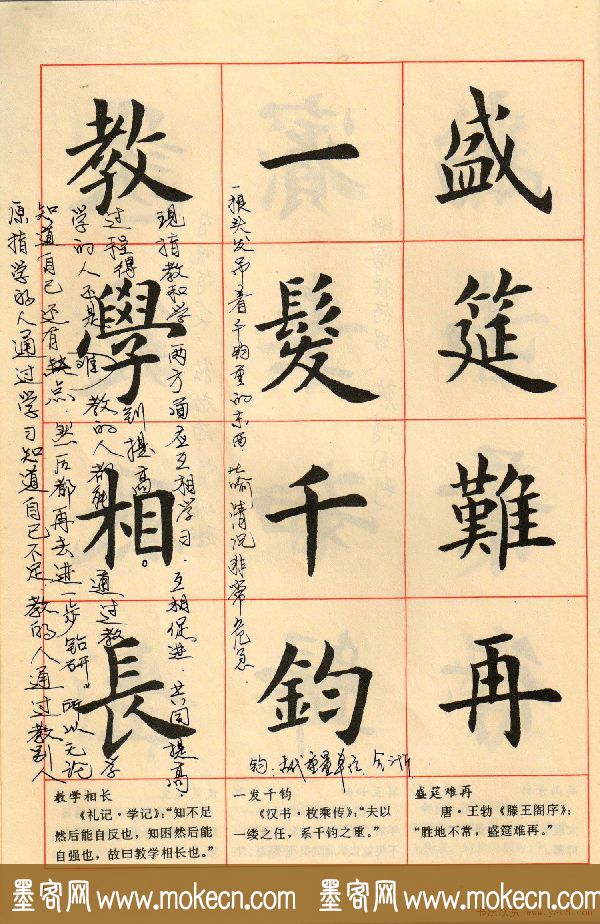 盛筵難再
一髮千鈞
教學相長
一根头发吊着千钧重的东西.比喻情况非常危急.
钧:古代重量单位
原指学的人通过学习知道自己不足.教的人通过教别人
知道自己还有缺点.然后都再去进一步钻研。所以无论
学的人还是 教的人都能 通过教学
过程得到提高。
现指教和学两方面应互相学习.互相促进.共同提高.
盛筵难再
唐·王勃《滕王阁序》：
“胜地不常，盛筵难再。”
一发千钧
《汉书·枚乘传》：“夫以
一缕之任，系千钧之重。”
教学相长
《礼记·学记》：“知不足
然后能自反也，知困然后能
自强也，故曰教学相长也。”
墨客网 www.mokecn.com 墨客网 www.mokecn.com